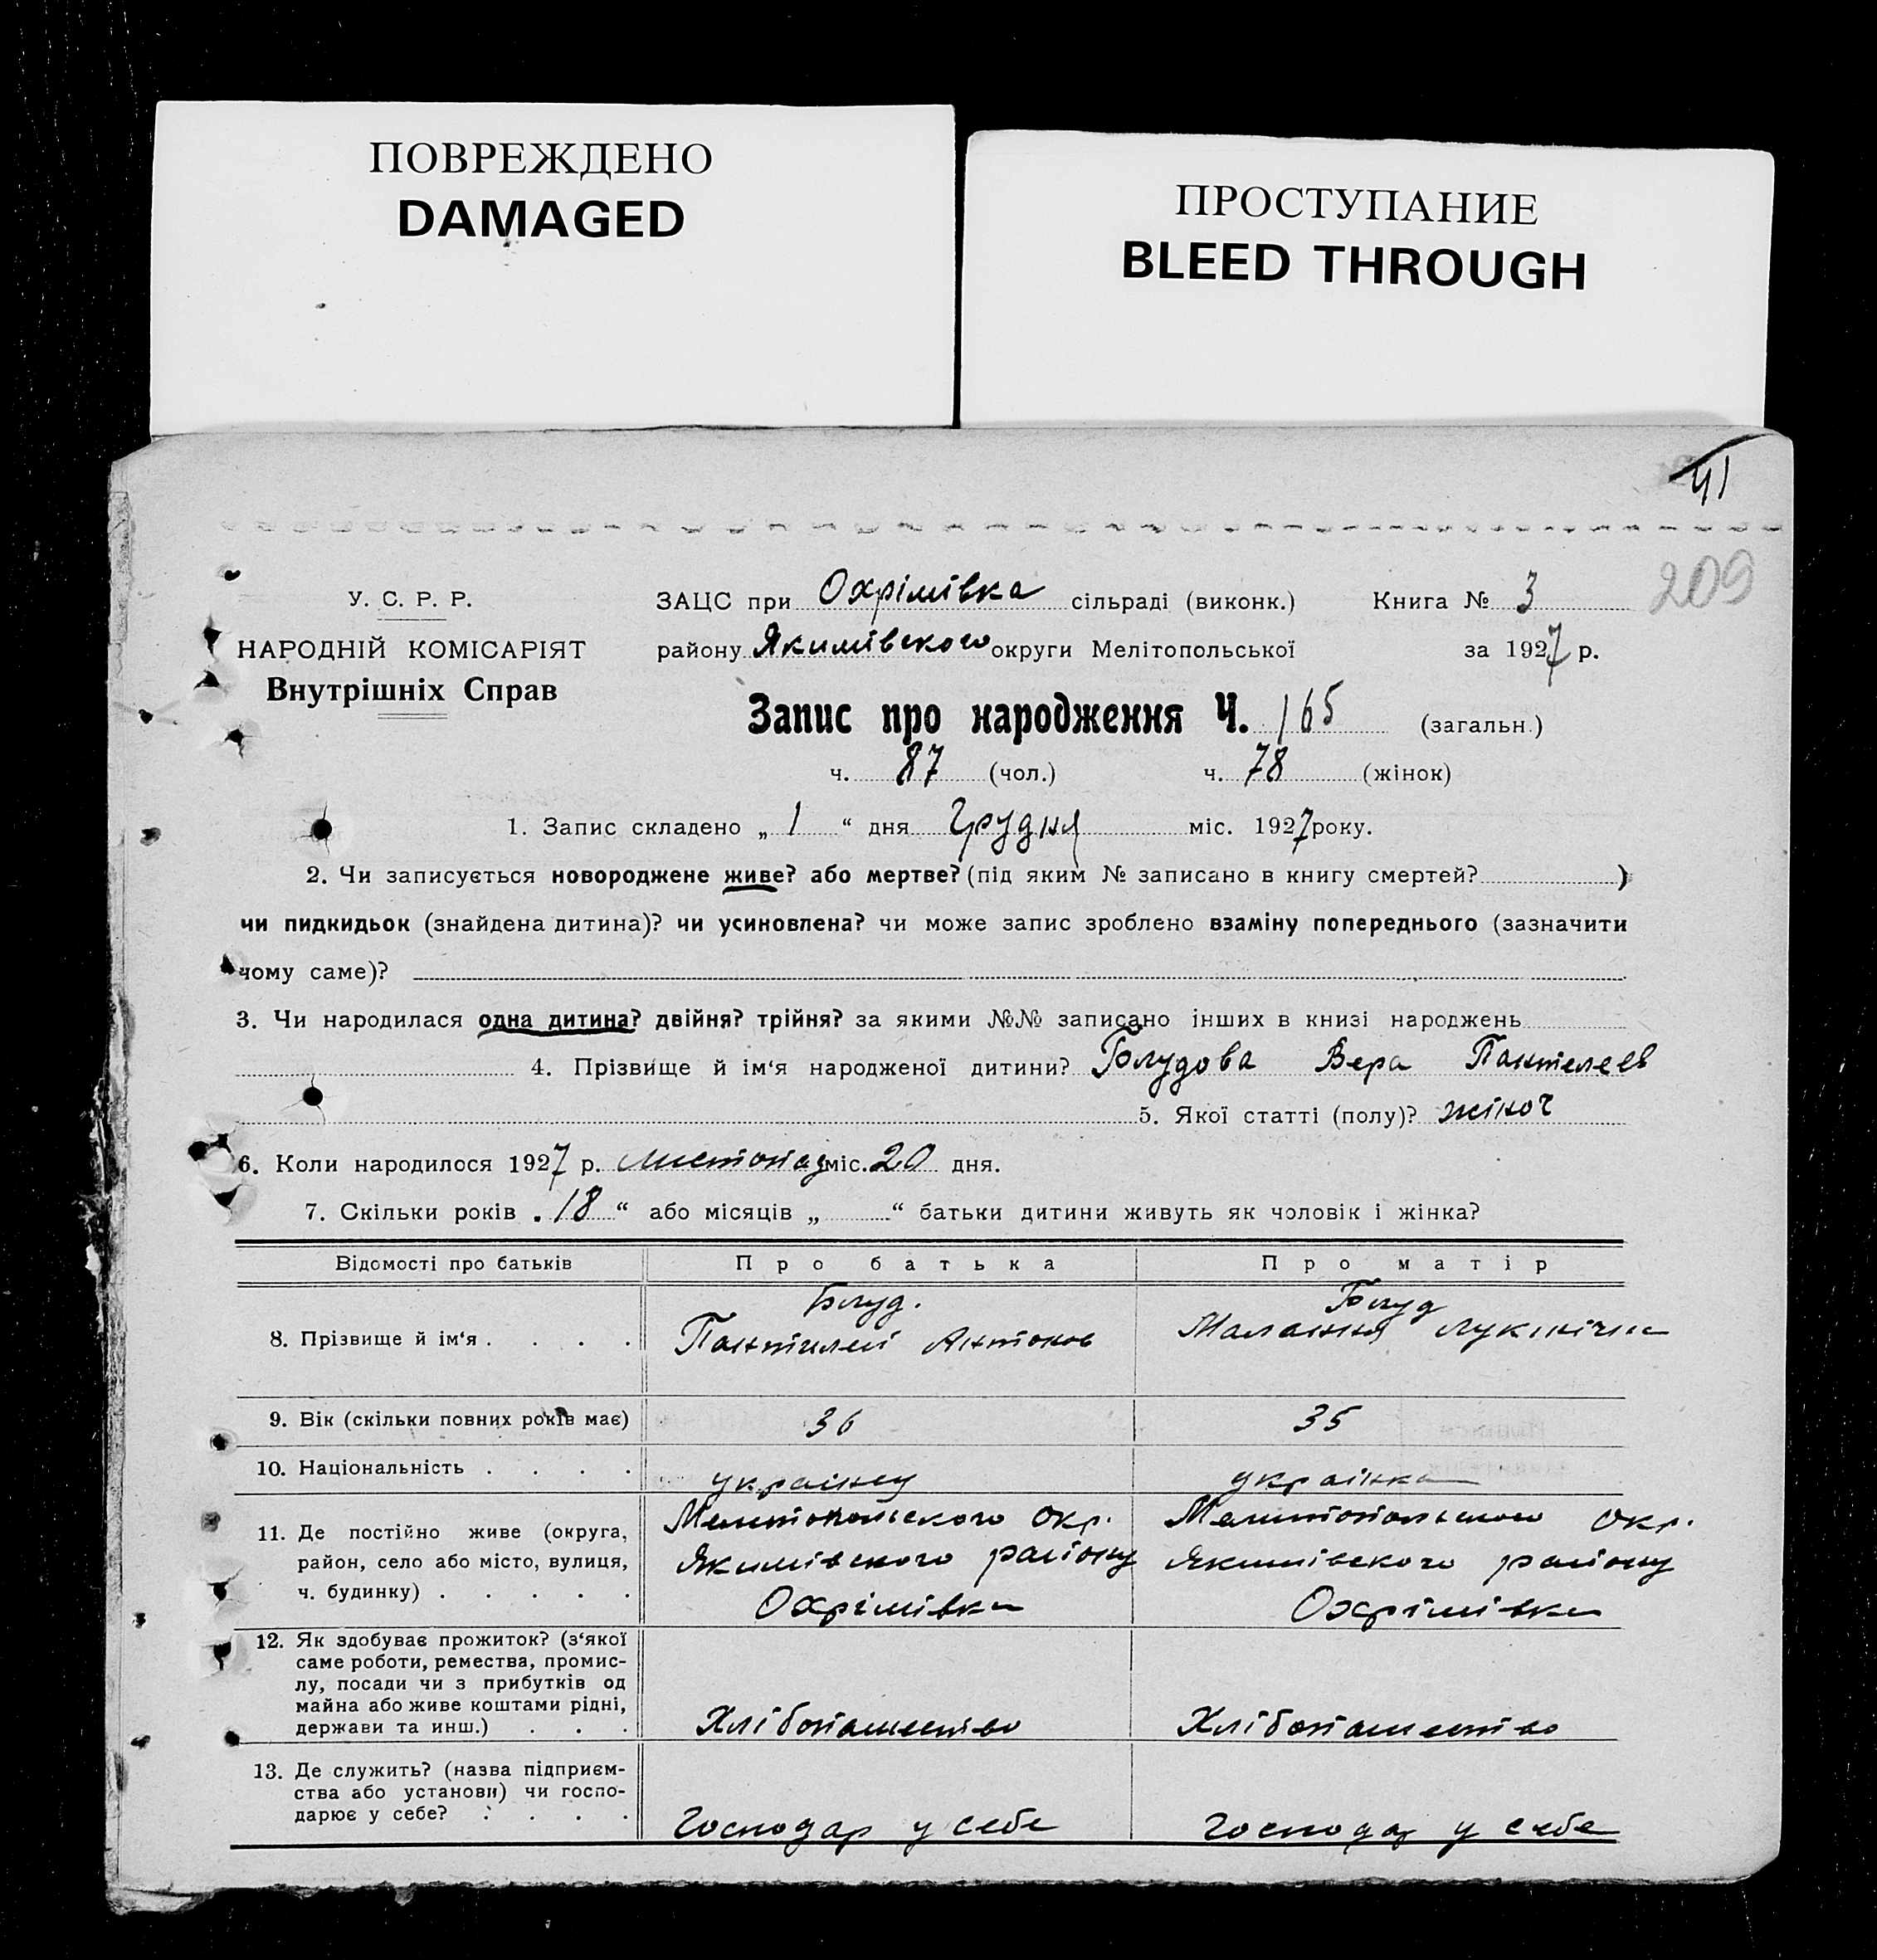 ПОВРЕЖДЕНО
DAMAGED
ПРОСТУПАНИЕ
BLEED THROUGH
41
209
У. С. Р. Р.
НАРОДНІЙ КОМІСАРІЯТ
Внутрішніх Справ
ЗАЦС при Охрімівка сільраді (виконк.) Книга № 3
району Якимівского округи Мелітопольської за 1927 р.
Запис про народження Ч. 165 (загальн.)
ч. 87 (чол.) ч. 78 (жінок)
1. Запис складено „ 1 “ дня Грудня міс. 1927 року.
2. Чи записується новороджене живе? або мертве? (під яким № записано в книгу смертей? )
чи пидкидьок (знайдена дитина)? чи усиновлена? чи може запис зроблено взаміну попереднього (зазначити
чому саме)?
3. Чи народилася одна дитина? двійня? трійня? за якими №№ записано інших в книзі народжень
4. Прізвище й ім‘я народженої дитини? Блудова Вера Пантелеев
5. Якої статті (полу)? жіноч
6. Коли народилося 1927 р. листопад міс. 20 дня.
7. Скільки років „ 18 “ або місяців „ “ батьки дитини живуть як чоловік і жінка?
Відомості про батьків Про батька Про матір
8. Прізвище й ім‘я . . . .
Блуд.
Пантилей Антонов
Блуд
Малання Лукінічна
9. Вік (скільки повних років має) 36 35
10. Національність . . . . українец українка
11. Де постійно живе (округа,
район, село або місто, вулиця,
ч. будинку) . . . . .
Мелитопольского Окр.
Якимівского району
Охрімівка
Мелитопольского Окр.
Якимівского району
Охрімівка
12. Як здобуває прожиток? (з‘якої
саме роботи, ремества, промис-
лу, посади чи з прибутків од
майна або живе коштами рідні,
держави та инш.) . . .
Хлібопашество
Хлібопашество
13. Де служить? (назва підприєм-
ства або установи) чи госпо-
дарює у себе? . . . .
Господар у себе
Господар у себе